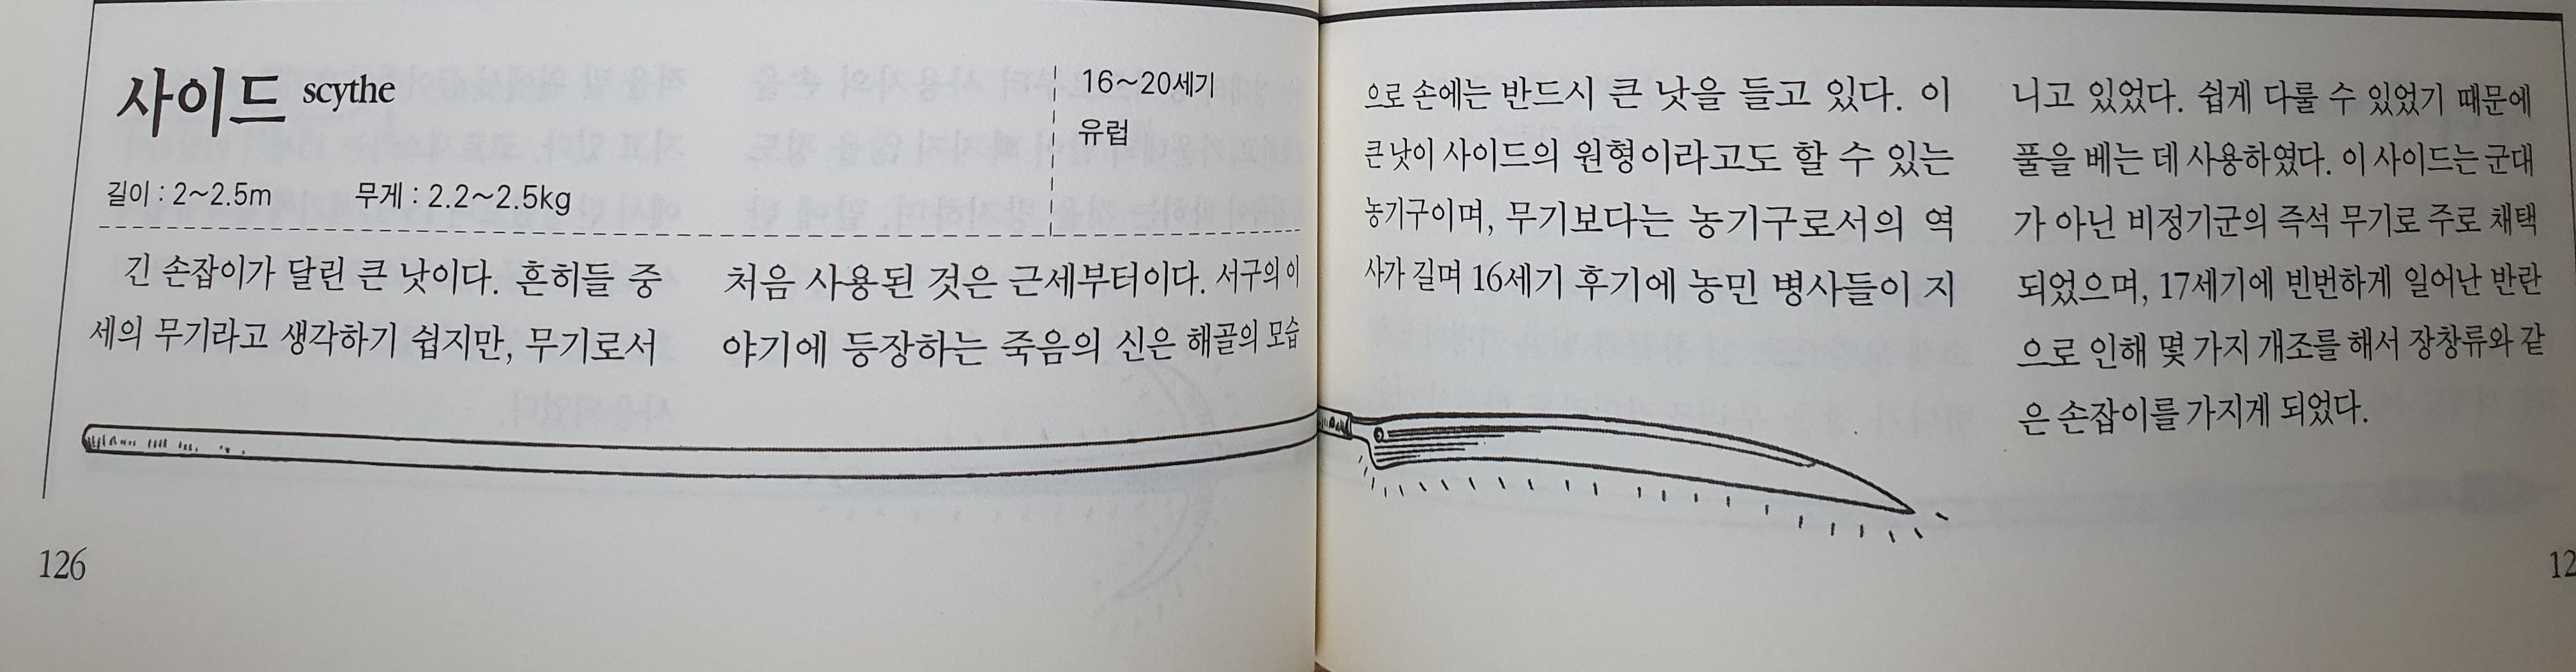 사이드 scythe
16~20세기
유럽
길이 : 2~2.5m 무게 : 2.2~2.5kg
긴 손잡이가 달린 큰 낫이다. 흔히들 중
세의 무기라고 생각하기 쉽지만, 무기로서
처음 사용된 것은 근세부터이다. 서구의 이
야기에 등장하는 죽음의 신은 해골의 모습
126
으로 손에는 반드시 큰 낫을 들고 있다. 이
큰 낫이 사이드의 원형이라고도 할 수 있는
농기구이며, 무기보다는 농기구로서의 역
사가 길며 16세기 후기에 농민 병사들이 지
니고 있었다. 쉽게 다룰 수 있었기 때문에
풀을 베는 데 사용하였다. 이 사이드는 군대
가 아닌 비정기군의 즉석 무기로 주로 채택
되었으며, 17세기에 빈번하게 일어난 반란
으로 인해 몇 가지 개조를 해서 장창류와 같
은 손잡이를 가지게 되었다.